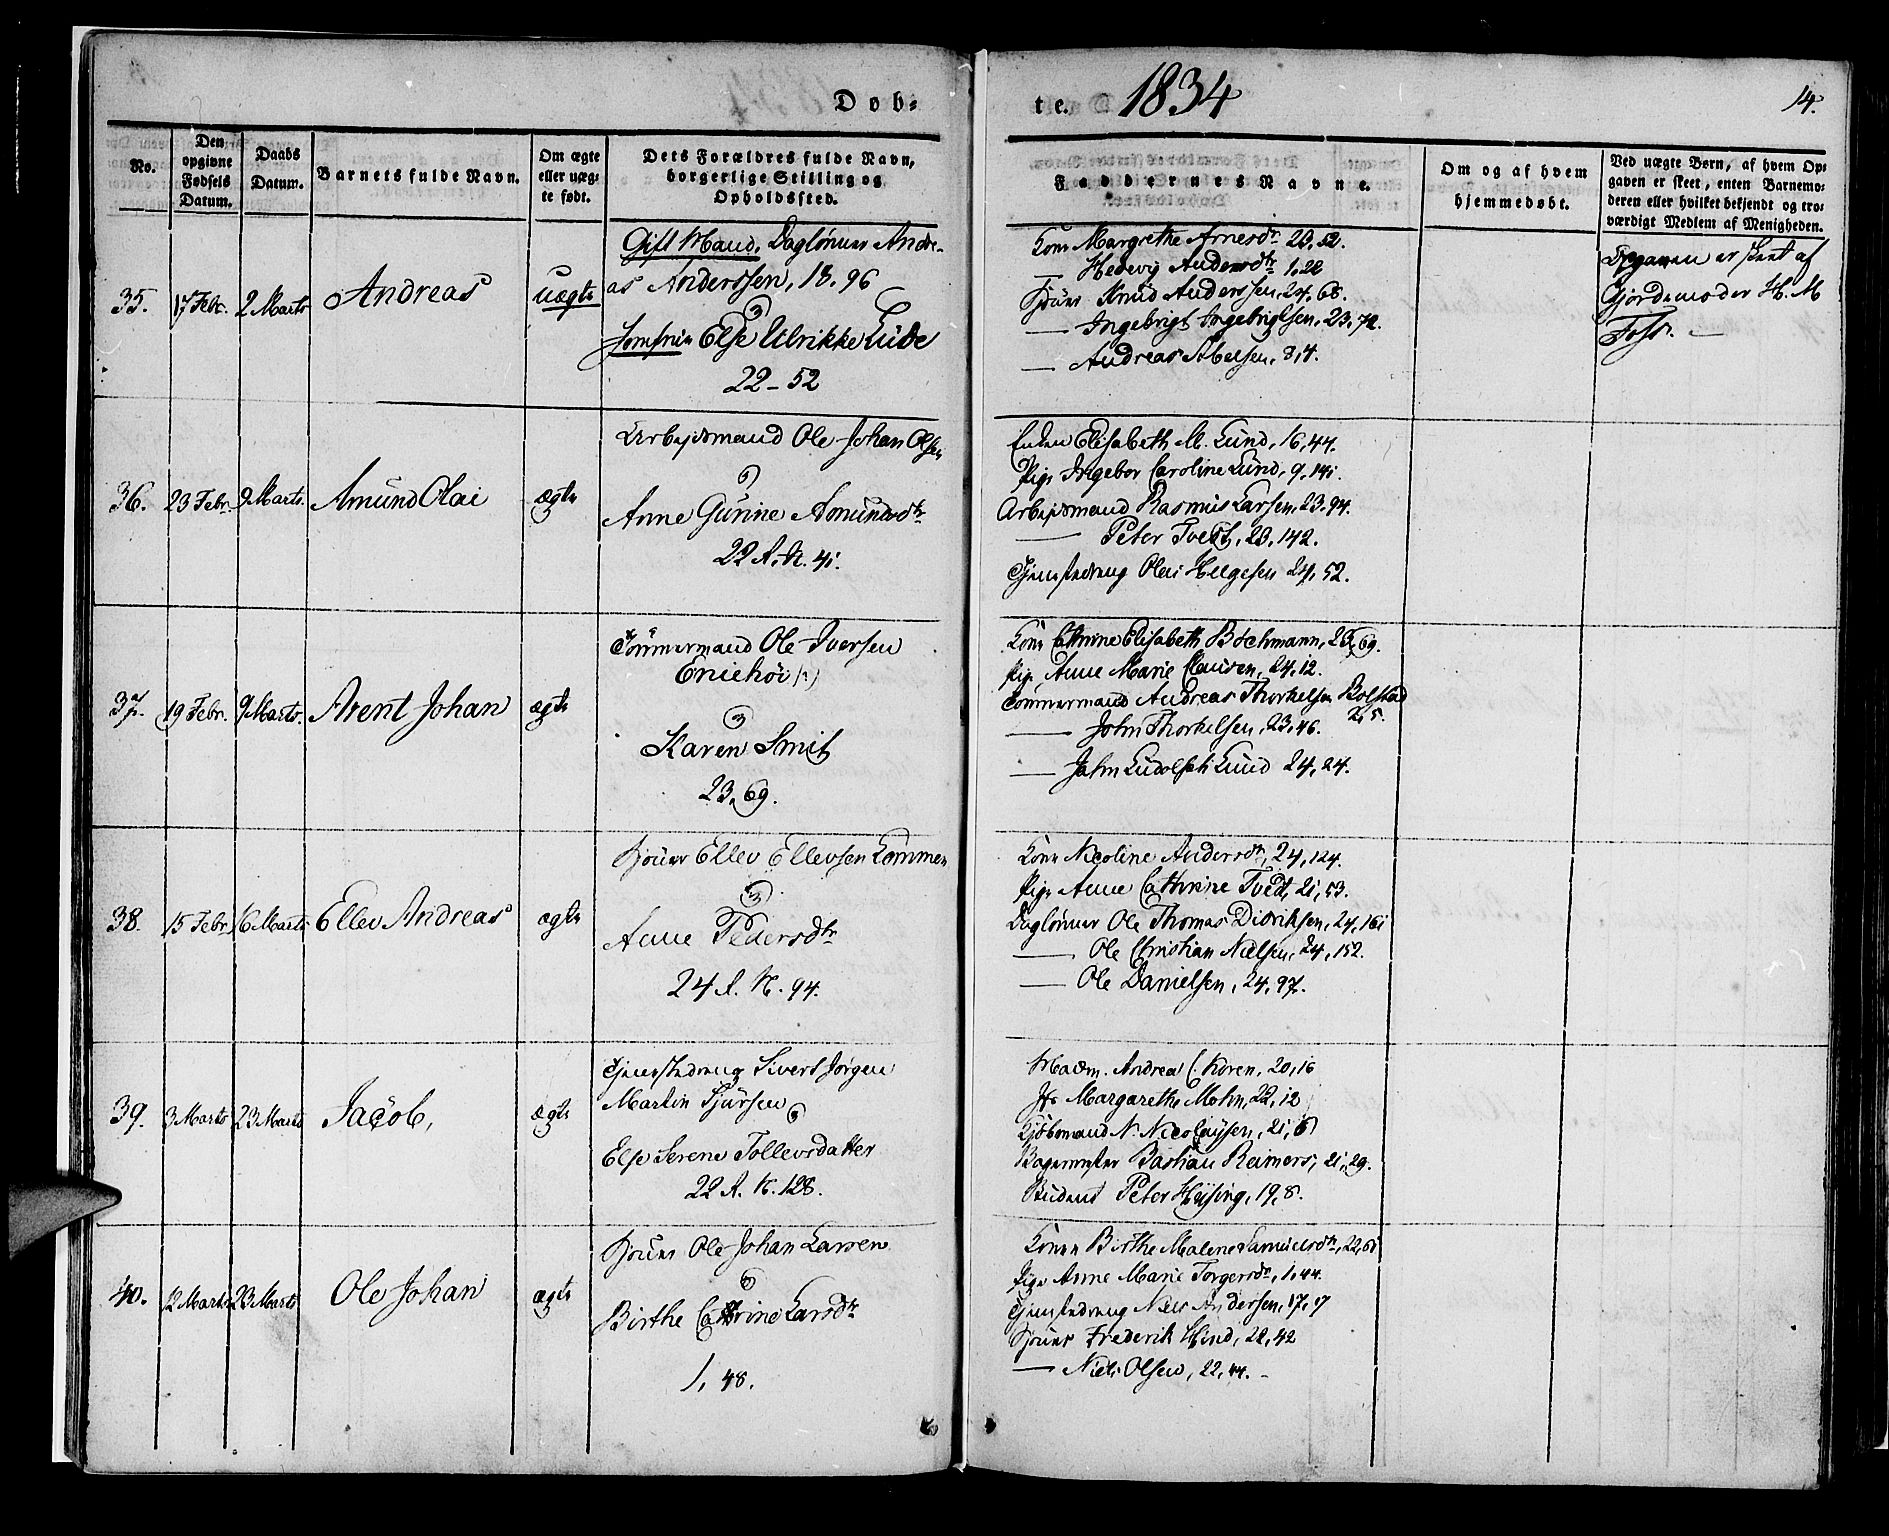 Døb-
te. 1834
14.
No.
Den opgivne Fødsels Datum.
Daabs Datum.
Barnets fulde Navn.
Om ægte eller uæg-te født.
Dets Forældres fulde Navn, borgerlige Stilling og Opholdssted.
Faddernes Navne.
Om og af hvem hjemmedøbt.
Ved uægte Børn, af hvem Op-
gaven er skeet, enten Barnemo-
deren eller hvilket bekjendt og tro-
værdigt Medlem af Menigheden.
35. 17 Febr. 2 Marts Andreas uægte
Gift Mand, Daglønner Andre-
as Anderssen, 18.96
og
Jomfrue Else Ulrikke Lüde
22-52
Kone Margrethe Arnesdr 23,52.
— Hedevig Andersdtr 1,22
Knud Anderssen, 24,68.
— Ingebrigt Ingebrigtsen, 23,72.
— Andreas Abelsen, 8,4.
Opgaven er skeet af
Gjordemoder H. M
36. 23 Febr. 9 Marts. Amund Olai ægte
Arbejdsmand Ole Johan Olsen
og
Anne Gurine Amundsdtr
22 A. K. 41.
Enken Elisabeth M. Lund, 16,44.
Pige Ingebor Caroline Lund, 9,141.
Arbejdsmand Rasmus Larsen, 23,94.
— Peter Tvedt, 23,142.
Tjenestedreng Olai Helgesen 24,52.
37. 19 Febr. 9 Marts. Arent Johan ægte
Tömmermand Ole Iversen
Eniehöi (?)
og
Karen Smit
23,69.
Kone Cathrine Elisabeth Bochmann, 23,69.
Pige Anne Marie Clausen, 24,12.
Tömmermand Andreas Thorkelsen Bolstad
2,5.
— John Thorkelsen, 23,46.
— John Ludolph Lund 24,24.
38. 15 Febr. 16 Marts Ellev Andreas ægte
Ellev Ellevsen Lommen
og
Anne Pedersdtr
24 A. K. 94.
Kone Nicoline Andersdtr, 24,124.
Pige Anne Cathrine Tvedt, 21,53.
Daglønner Ole Thomas Didriksen, 24,161
— Ole Christian Nielsen, 24,152.
— Ole Danielsen, 24,97.
39. 3 Marts 23 Marts Jacob, ægte
Tjenestedreng Sivert Jørgen
Martin Sjursen
og
Else Serene Tollevsdatter
22 A. K. 128.
Madm. Andrea C. Koren, 20,16
Jfr Margarethe Mohn, 22,12
Kjöbmand N. Nicolaysen, 21,6
Bagermester Bastian Reimers, 21,29.
Student Peter Heysing, 19,8.
40. 12 Marts 23 Marts Ole Johan ægte
Ole Johan Larsen
og
Birthe Cathrine Larsdtr
1,48.
Konen Birthe Malene Samuelsdtr, 22,61
Pige Anne Marie Torgersdtr, 1,44.
Tjenestedreng Niels Andersen, 17,17
Frederik Hind, 22,42
— Niels Olsen, 22,44. -